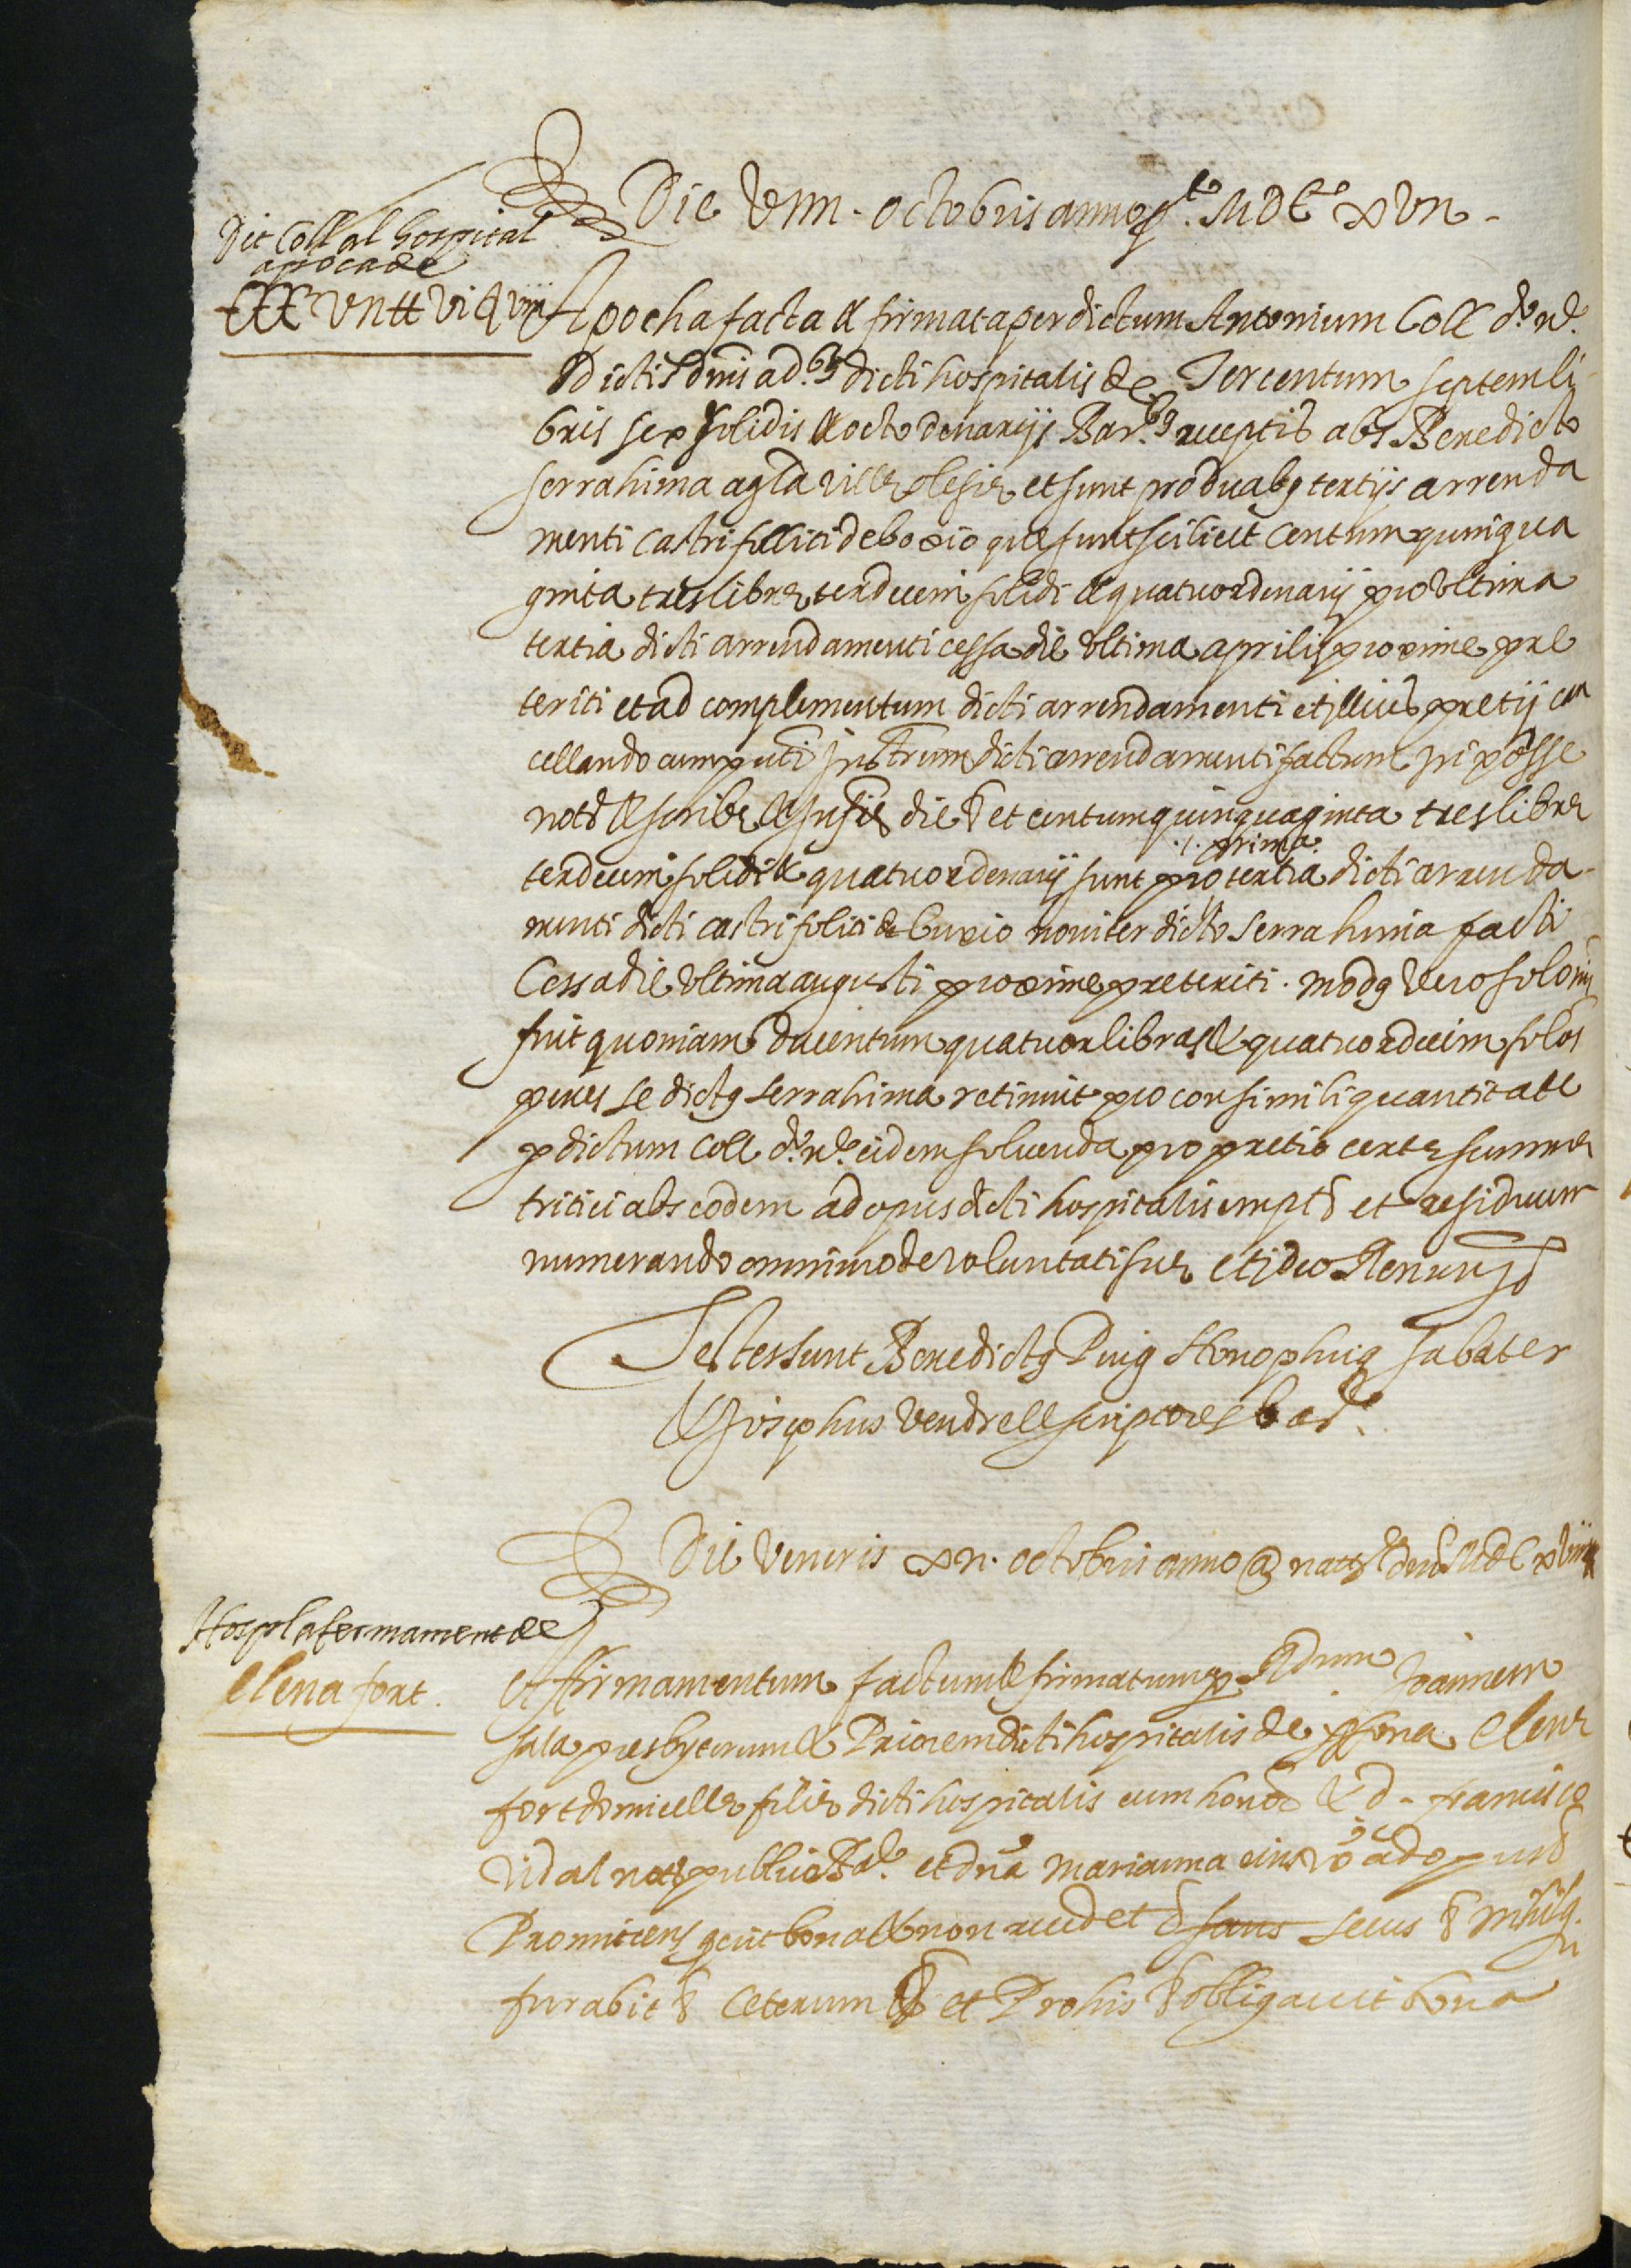 Die VIIII. octobris anno p.te MDC.o XVII.
Dit Coll al hospital
apoca de
CCC VII ll VI s VIII
Apocha facta & firmata per dictum Antonium Coll d.o n.e
dictis dnis ad.bus dicti hospitalis de Tercentum septem li
bris sex solidis & octo denariis Bar.bus receptis abs Benedicto
serrahima agla ville olesie et sunt pro duabus tertijs arrenda
menti castri sulliti de boxio que sunt scilicet Centum quinqua
ginta tres libre terdecim solidi & quatuor denarij pro ultima
tertia dicti arrendamenti cessa die ultima aprilis proxime pre
teriti et ad complementum dicti arrendamenti et illius pretij can
cellando cum pnti Instrum dicti arrendamenti factum in posse
not.s & scribe & Infre die & et centum quinquaginta tres libre
prima
terdecim solidi & quatuor denarij sunt pro tertia dicti arrenda
menti dicti castri soliti de buxio noviter dicto serrahima facti
Cessa die ultima augusti proxime preteriti. modus vero solonis
fuit quoniam ducentum quatuor libras & quatuordecim solos
penes se dictus serrahima retinuit pro consimili quantitate
p dictum Coll d.o n.e eidem soluenda pro pretio certe summe
tritici abs eodem ad opus dicti hospitalis empt & et residuum
numerando omnimode voluntati sue et ideo Renun &
Testes sunt Benedictus Puig Honophrius sabater
& Josephus Vendrell scriptores bar.e
Die veneris XII. octobris anno @ nat.e dni MDC XVIII
Hospl afermament de
elena fort.
Affirmamentum factum & firmatum p Rdum Joannem
sala presbyterum & Priorem dicti hospitalis de persona Elene
fort domicelle filie dicti hospitalis cum honor & d. francisco
vidal not. publico Bar.e et dna Marianna eius vo ad opus &
Promittens quit bona & non reced et & secus & nihilq.
furabit & Ceterum & et Prohis & obligavit bona